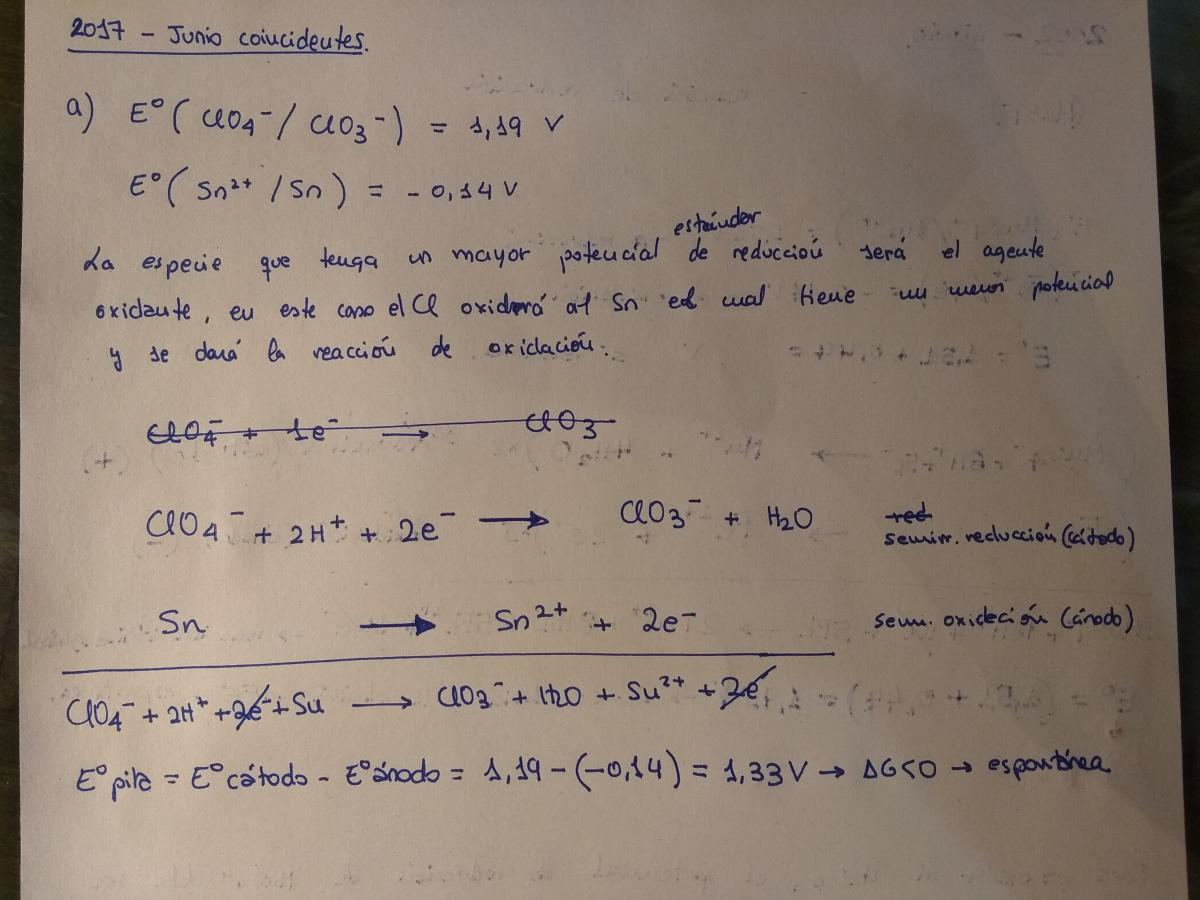 2017 - Junio coincidentes.
a) E° ( ClO4⁻ / ClO3⁻ ) = 1,19 V
E° ( Sn²⁺ / Sn ) = - 0,14 V
estándar
La especie que tenga un mayor potencial de reducción será el agente
oxidante, en este caso el Cl oxidará al Sn el cual tiene un menor potencial
y se dará la reacción de oxidación:
ClO4⁻ + 1e⁻ → ClO3
ClO4⁻ + 2H⁺ + 2e⁻ → ClO3⁻ + H2O red
semirr. reducción (cátodo)
Sn → Sn²⁺ + 2e⁻ semi. oxidación (ánodo)
ClO4⁻ + 2H⁺ + 2e⁻ + Sn → ClO3⁻ + H2O + Sn²⁺ + 2e⁻
E° pila = E° cátodo - E° ánodo = 1,19 - (-0,14) = 1,33 V → ΔG<0 → espontánea